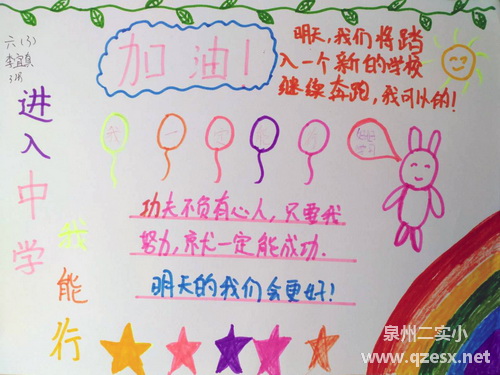 六（3）
李宜臻
3班
进入中学
我能行
加油！
明天，我们将踏
入一个新的学校
继续奔跑，我可以的！
我
一
定
好好
学习
功夫不负有心人，只要我
努力，就一定能成功．
明天的我们会更好！
泉州二实小
www.qzesx.net